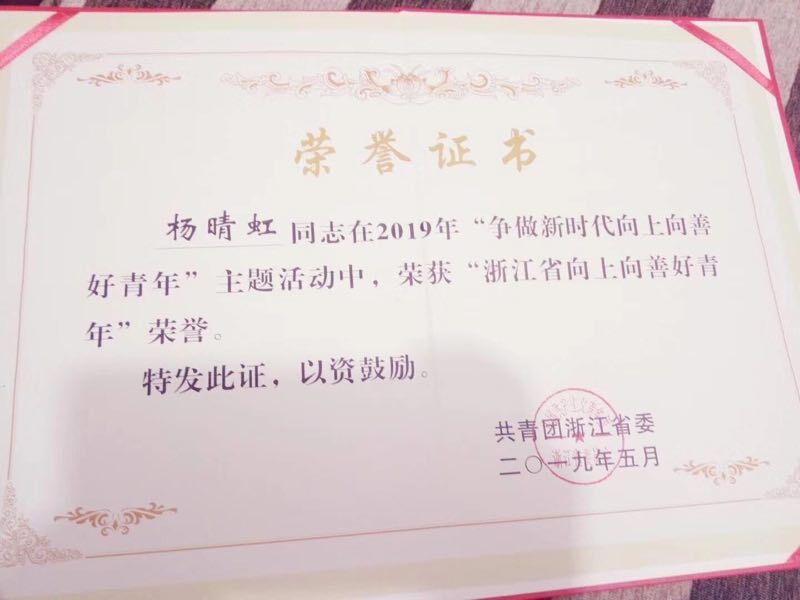 荣誉证书
杨晴虹 同志在2019年“争做新时代向上向善
好青年”主题活动中，荣获“浙江省向上向善好青
年”荣誉。
特发此证，以资鼓励。
共青团浙江省委
二〇一九年五月